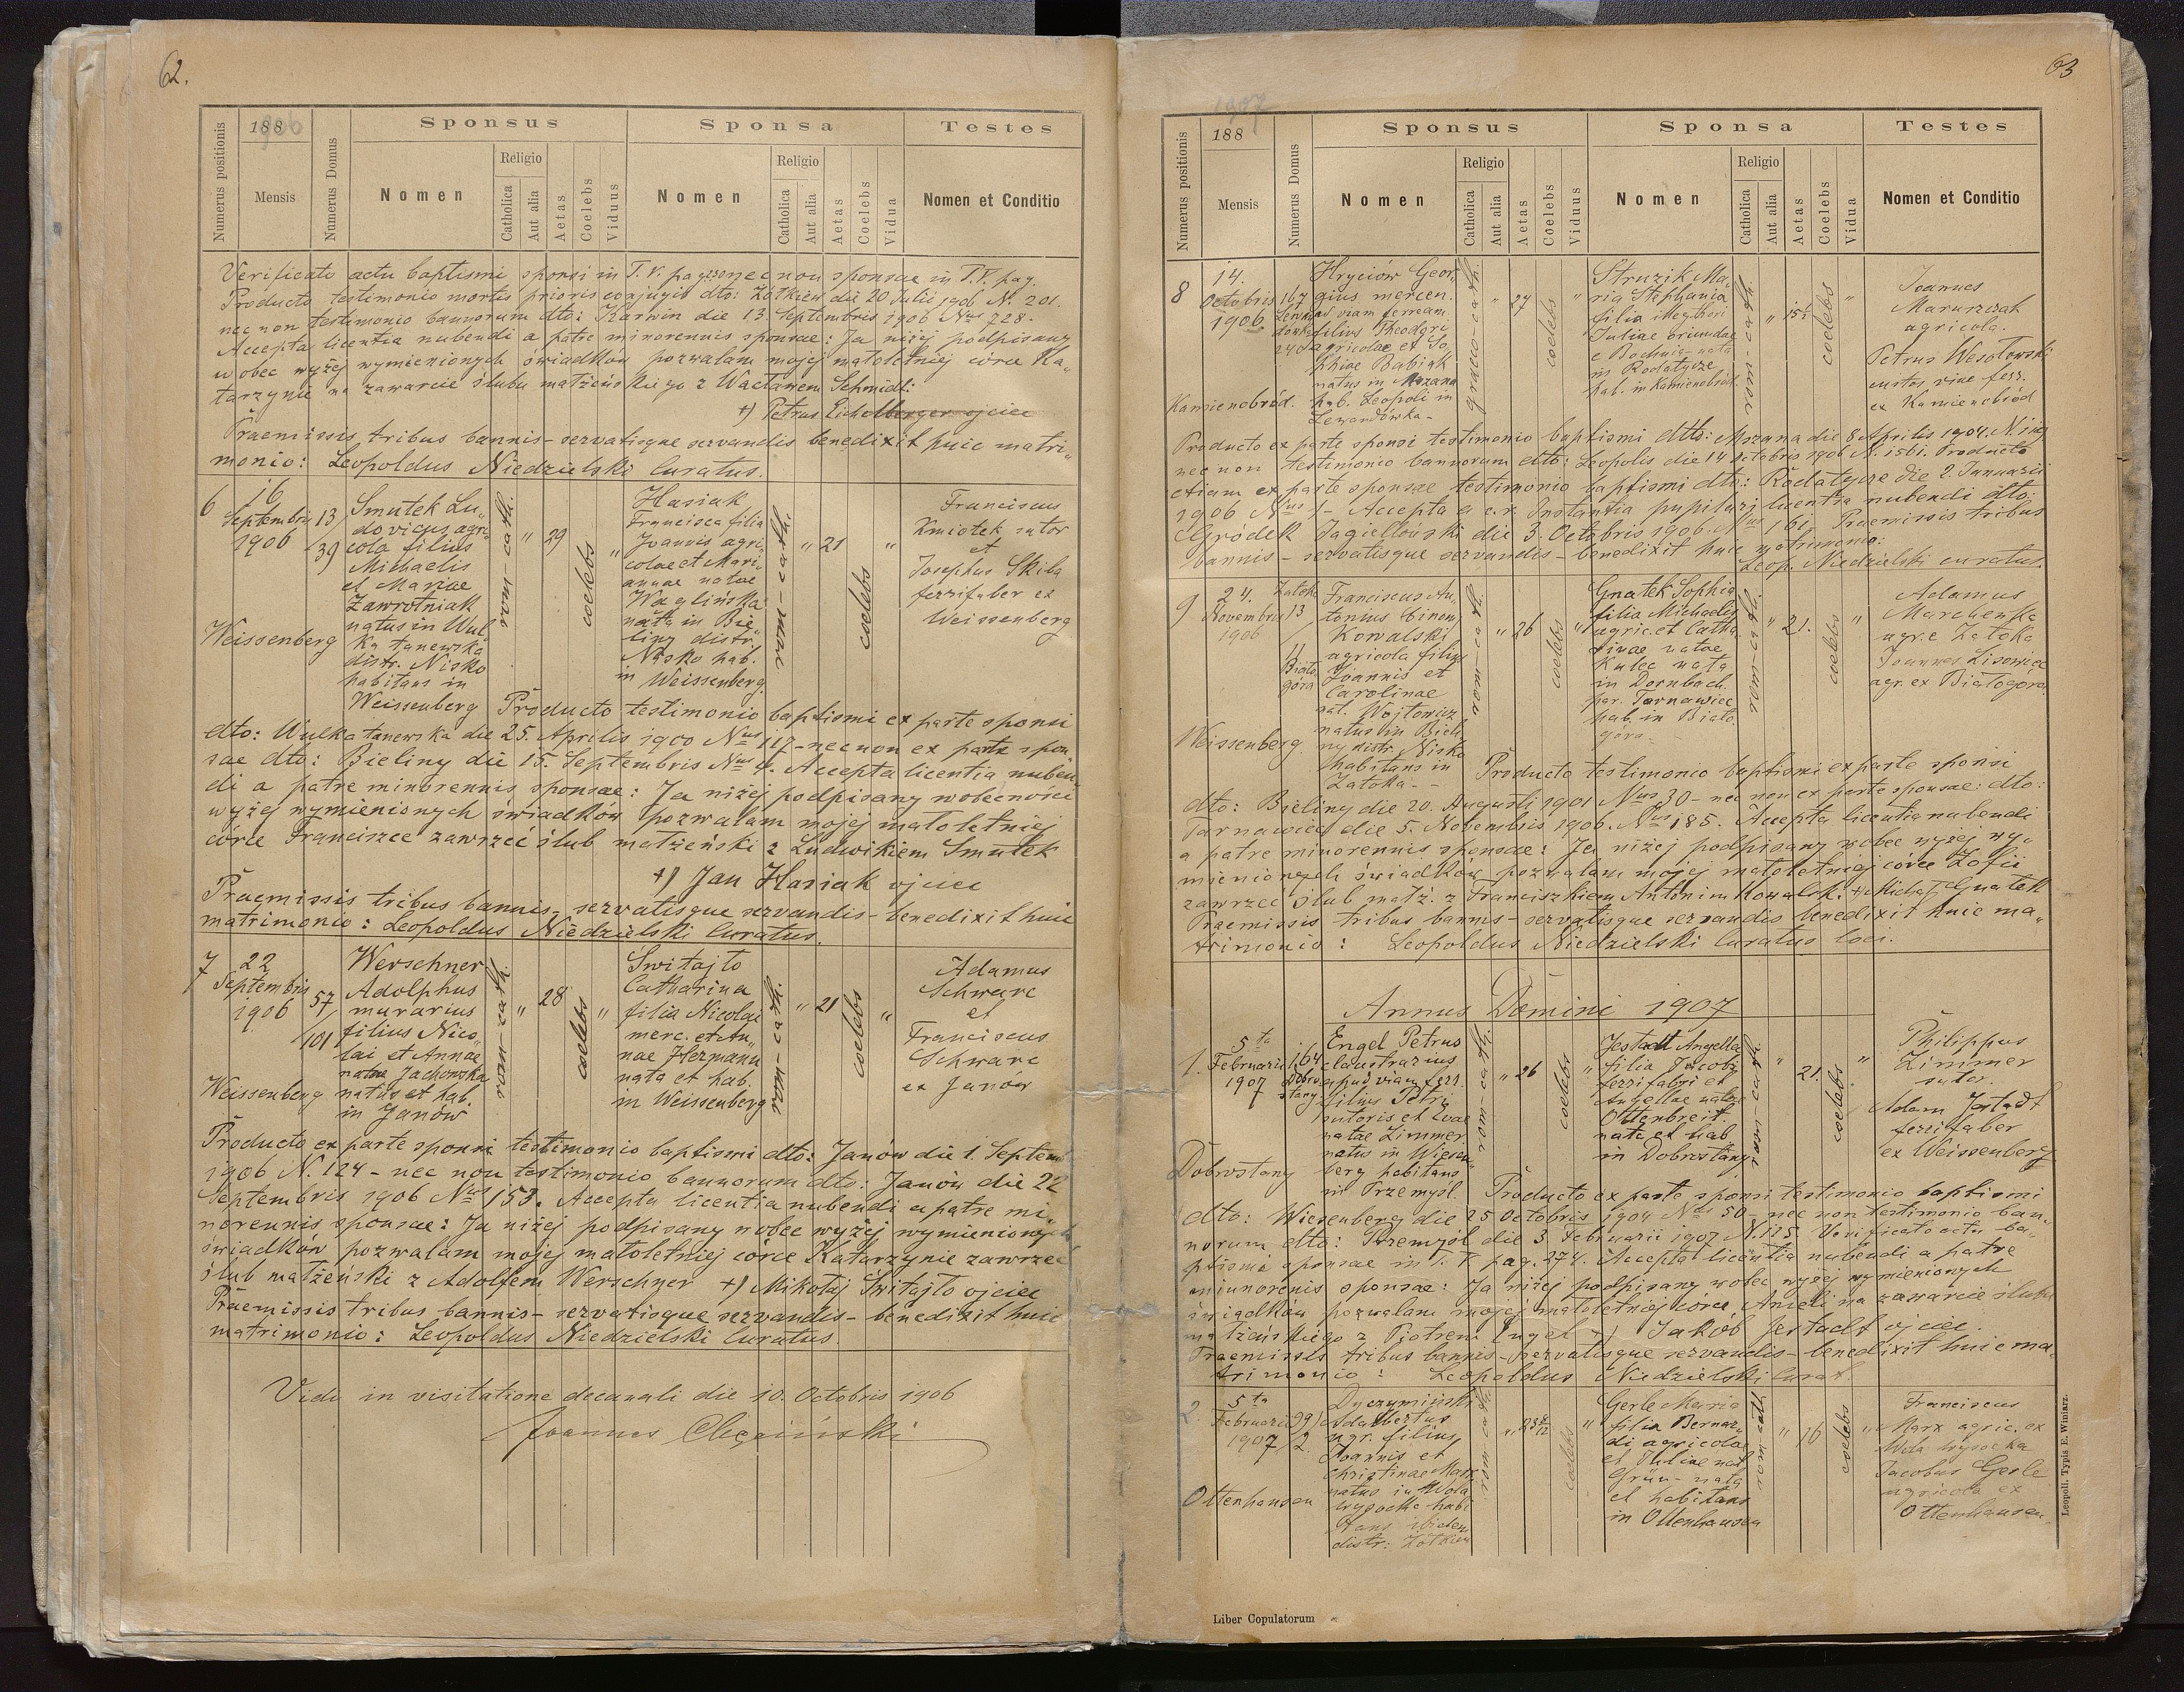 62.
188
1906
Mensis
Numerus positionis
Numerus Domus
Sponsus
Sponsa
Testes
Nomen
Religio
Catholica
Aut alia
Aetas
Coelebs
Viduus
Nomen
Religio
Catholica
Aut alia
Aetas
Coelebs
Vidua
Nomen et Conditio
Verificato actu baptismi sponsi in T. V. pag. nec non sponsae in T. V. pag.
Producto testimonio mortis prioris conjugis dto: Żółkiew die 20 Julii 1906 N. 201.
nec non testimonio bannorum dto: Karwin die 13. Septembris 1906 Nus 728.
Accepta licentia nubendi a patre minorennis sponsae: Ja niżej podpisany
wobec wyżej wymienionych świadków pozwalam mojej małoletniej córce Ka„
tarzynie na zawarcie ślubu małżeńskiego z Wacławem Schmidt:
+) Petrus Eichelberger ojciec
Praemissis tribus bannis – servatisque servandis benedixit huic matri„
monio: Leopoldus Niedzielski Curatus.
6
16
Septembris
1906
13/
39
Weissenberg
Smutek Lu„
dovicus agri„
cola filius
Michaelis
et Mariae
Zawrotniak
natus in Wul„
ka tanewska
distr. Nisko
habitans in
Weissenberg
rom-cath.
"
29
coelebs
"
Hasiak
Francisca filia
Joannis agri„
colae et Mari„
annae natae
Waglińska
nata in Bie„
liny distr.
Nisko hab.
in Weissenberg.
rom-cath.
"
21
coelebs
"
Franciscus
Kmiotek sutor
et
Josephus Skiba
ferrifaber ex
Weissenberg
Producto testimonio baptismi ex parte sponsi
dto: Wulka tanewska die 25. Aprilis 1900 Nus 117 – nec non ex parte spon„
sae dto: Bieliny die 15. Septembris Nus 4. Accepta licentia nuben„
di a patre minorennis sponsae: Ja niżej podpisany w obecności
wyżej wymienionych świadków pozwalam mojej małoletniej
córce Franciszce zawrzeć ślub małżeński z Ludwikiem Smutek
+) Jan Hasiak ojciec
Praemissis tribus bannis – servatisque servandis – benedixit huic
matrimonio: Leopoldus Niedzielski Curatus.
7
22
Septembris
1906
57/
101
Weissenberg
Werschner
Adolphus
murarius
filius Nico„
lai et Annae
natae Jachowska
natus et hab.
in Janów
rom-cath.
"
28
coelebs
"
Świtajło
Catharina
filia Nicolai
merc. et An„
nae Hermann
nata et hab.
in Weissenberg
rom-cath.
"
21
coelebs
"
Adamus
Schwarc
et
Franciscus
Schwarc
ex Janów
Producto ex parte sponsi testimonio baptismi dto: Janów die 1. Septemb
1906 N. 124 – nec non testimonio bannorum dto: Janów die 22
Septembris 1906 Nus 153. Accepta licentia nubendi a patre mi„
norennis sponsae: Ja niżej podpisany wobec wyżej wymienionych
świadków pozwalam mojej małoletniej córce Katarzynie zawrzeć
ślub małżeński z Adolfem Werschner +) Mikołaj Świtajło ojciec
Praemissis tribus bannis – servatisque servandis – benedixit huic
matrimonio: Leopoldus Niedzielski Curatus.
Vidi in visitatione decanali die 10. Octobris 1906
Joannes
63
1907
188
Mensis
Numerus positionis
Numerus Domus
Sponsus
Sponsa
Testes
Nomen
Religio
Catholica
Aut alia
Aetas
Coelebs
Viduus
Nomen
Religio
Catholica
Aut alia
Aetas
Coelebs
Vidua
Nomen et Conditio
8
14.
Octobris
1906
167
Lewan
dówka
240
Kamienobród.
Hryciów Geor„
gius mercen.
ad viam ferream
filius Theodori
agricolae et So„
phiae Babiak
natus in Mszana
hab. Leopoli in
Lewandówka –
graeco-cath.
"
27
coelebs
"
Struzik Ma„
ria Stephania
filia Melchiori
Juliae oriundae
e Bochnia – nata
in Rodatycze
hab. in Kamienobród
rom-cath.
"
15
coelebs
"
Joannes
Maruszczak
agricola.
Petrus Wesołowski
custos viae ferr.
ex Kamienobród
Producto ex parte sponsi testimonio baptismi dtto: Mszana die 8 Aprilis 1904. N.
nec non testimonio bannorum dtto: Leopolis die 14 Octobris 1906 N. 1561. Producto
etiam ex parte sponsae testimonio baptismi dto: Rodatycze die 2. Januarii
1906 Nus 1 – Accepta a c.r. Instantia pupilari licentia nubendi dto:
Gródek Jagielloński die 3. Octobris 1906. Nus 161. Praemissis tribus
bannis – servatisque servandis – benedixit huic matrimonio:
Leop. Niedzielski curatus.
9
24.
Novembris
1906
Zatoka
13
/
11
Biało
góra
Weissenberg
Franciscus An„
tonius binom
Kowalski
agricola filius
Joannis et
Carolinae
nat. Wojtowicz
natus in Bieli„
ny distr. Nisko
habitans in
Zatoka –
rom-cath.
"
26
coelebs
"
Gnatek Sophia
filia Michaelis
agric. et Catha„
rinae natae
Kulec nata
in Dornbach
par. Tarnawiec
hab. in Biało
góra –
rom-cath.
"
21.
coelebs
"
Adamus
Marchewka
agr. e Zatoka
Joannes Lisowiec
agr. ex Białogora.
Producto testimonio baptismi ex parte sponsi
dto: Bieliny die 20. Augusti 1901 Nus 30 – nec non ex parte sponsae: dto:
Tarnawiec die 5. Novembris 1906. Nus 185. Accepta licentia nubendi
a patre minorennis sponsae: Ja niżej podpisany wobec wyżej wy„
mienionych świadków pozwalam mojej małoletniej córce Zofii
zawrzeć ślub małż. z Franciszkiem Antonim Kowalski. +) Michał Gnatek
Praemissis tribus bannis – servatisque servandis benedixit huic ma„
trimonio: Leopoldus Niedzielski Curatus loci.
Annus Domini 1907
1.
5ta
Februarii
1907
164
Dobro
stany
Dobrostany
Engel Petrus
claustrarius
apud viam ferr.
filius Petri
sutoris et Evae
natae Zimmer
natus in Wiesen„
berg habitans
in Przemyśl.
rom-cath.
"
26
coelebs
"
Jestadt Angella
filia Jacobi
ferrifabri et
Angellae natae
Ottenbreit
nata et hab.
in Dobrostany
rom-cath.
"
21.
coelebs
"
Philippus
Zimmer
sutor
Adam Jestadt
ferrifaber
ex Weissenberg
Producto ex parte sponsi testimonio baptismi
dto: Wiesenberg die 25 Octobris 1904 Nus 50 – nec non testimonio ban„
norum dto: Przemyśl die 3 Februarii 1907 N. 115. Verificato actu ba„
ptismi sponsae in T. V. pag. 274. Accepta licentia nubendi a patre
minnorenis sponsae: Ja niżej podpisany wobec wyżej wymienionych
świadków pozwalam mojej małoletniej córce Anieli na zawarcie ślubu
małżeńskiego z Piotrem Engel +) Jakób Jestadt ojciec.
Praemissis tribus bannis – servatisque servandis – benedixit huic ma„
trimonio: Leopoldus Niedzielski Curat.
2.
5ta
Februarii
1907
99/
2.
Ottenhausen
Dyczymiński
Adalbertus
agr. filius
Joannis et
Christinae Marx
natus in Wola
wysocka habi
tans ibidem
distr: Żółkiew
rom cath.
"
23
coelebs
"
Gerle Maria
filia Bernar„
di agricolae
et Juliae nat
Grün – nata
et habitans
in Ottenhausen
rom cath
"
16
coelebs
"
Franciscus
Marx agric. ex
Wola wysocka
Jacobus Gerle
agricola ex
Ottenhausen.
Liber Copulatorum
Leopoli. Typis E. Winiarz.